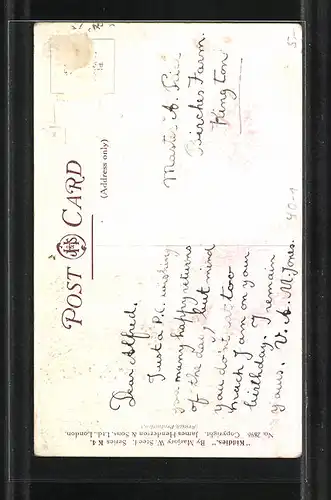 POST CARD
(Address only)
Dear Alfred.
Just a P.C. wishing
you many happy returns
of the day, but mind
you don't eat too
much I am on your
birthday. I remain
yours. V. A. M. Jones.
Master A.
Birches Farm.
Kington
5-
"Kiddies." By Marjory W. Steed. Series K 4.
No. 2886 Copyright. James Henderson & Sons, Ltd., London.